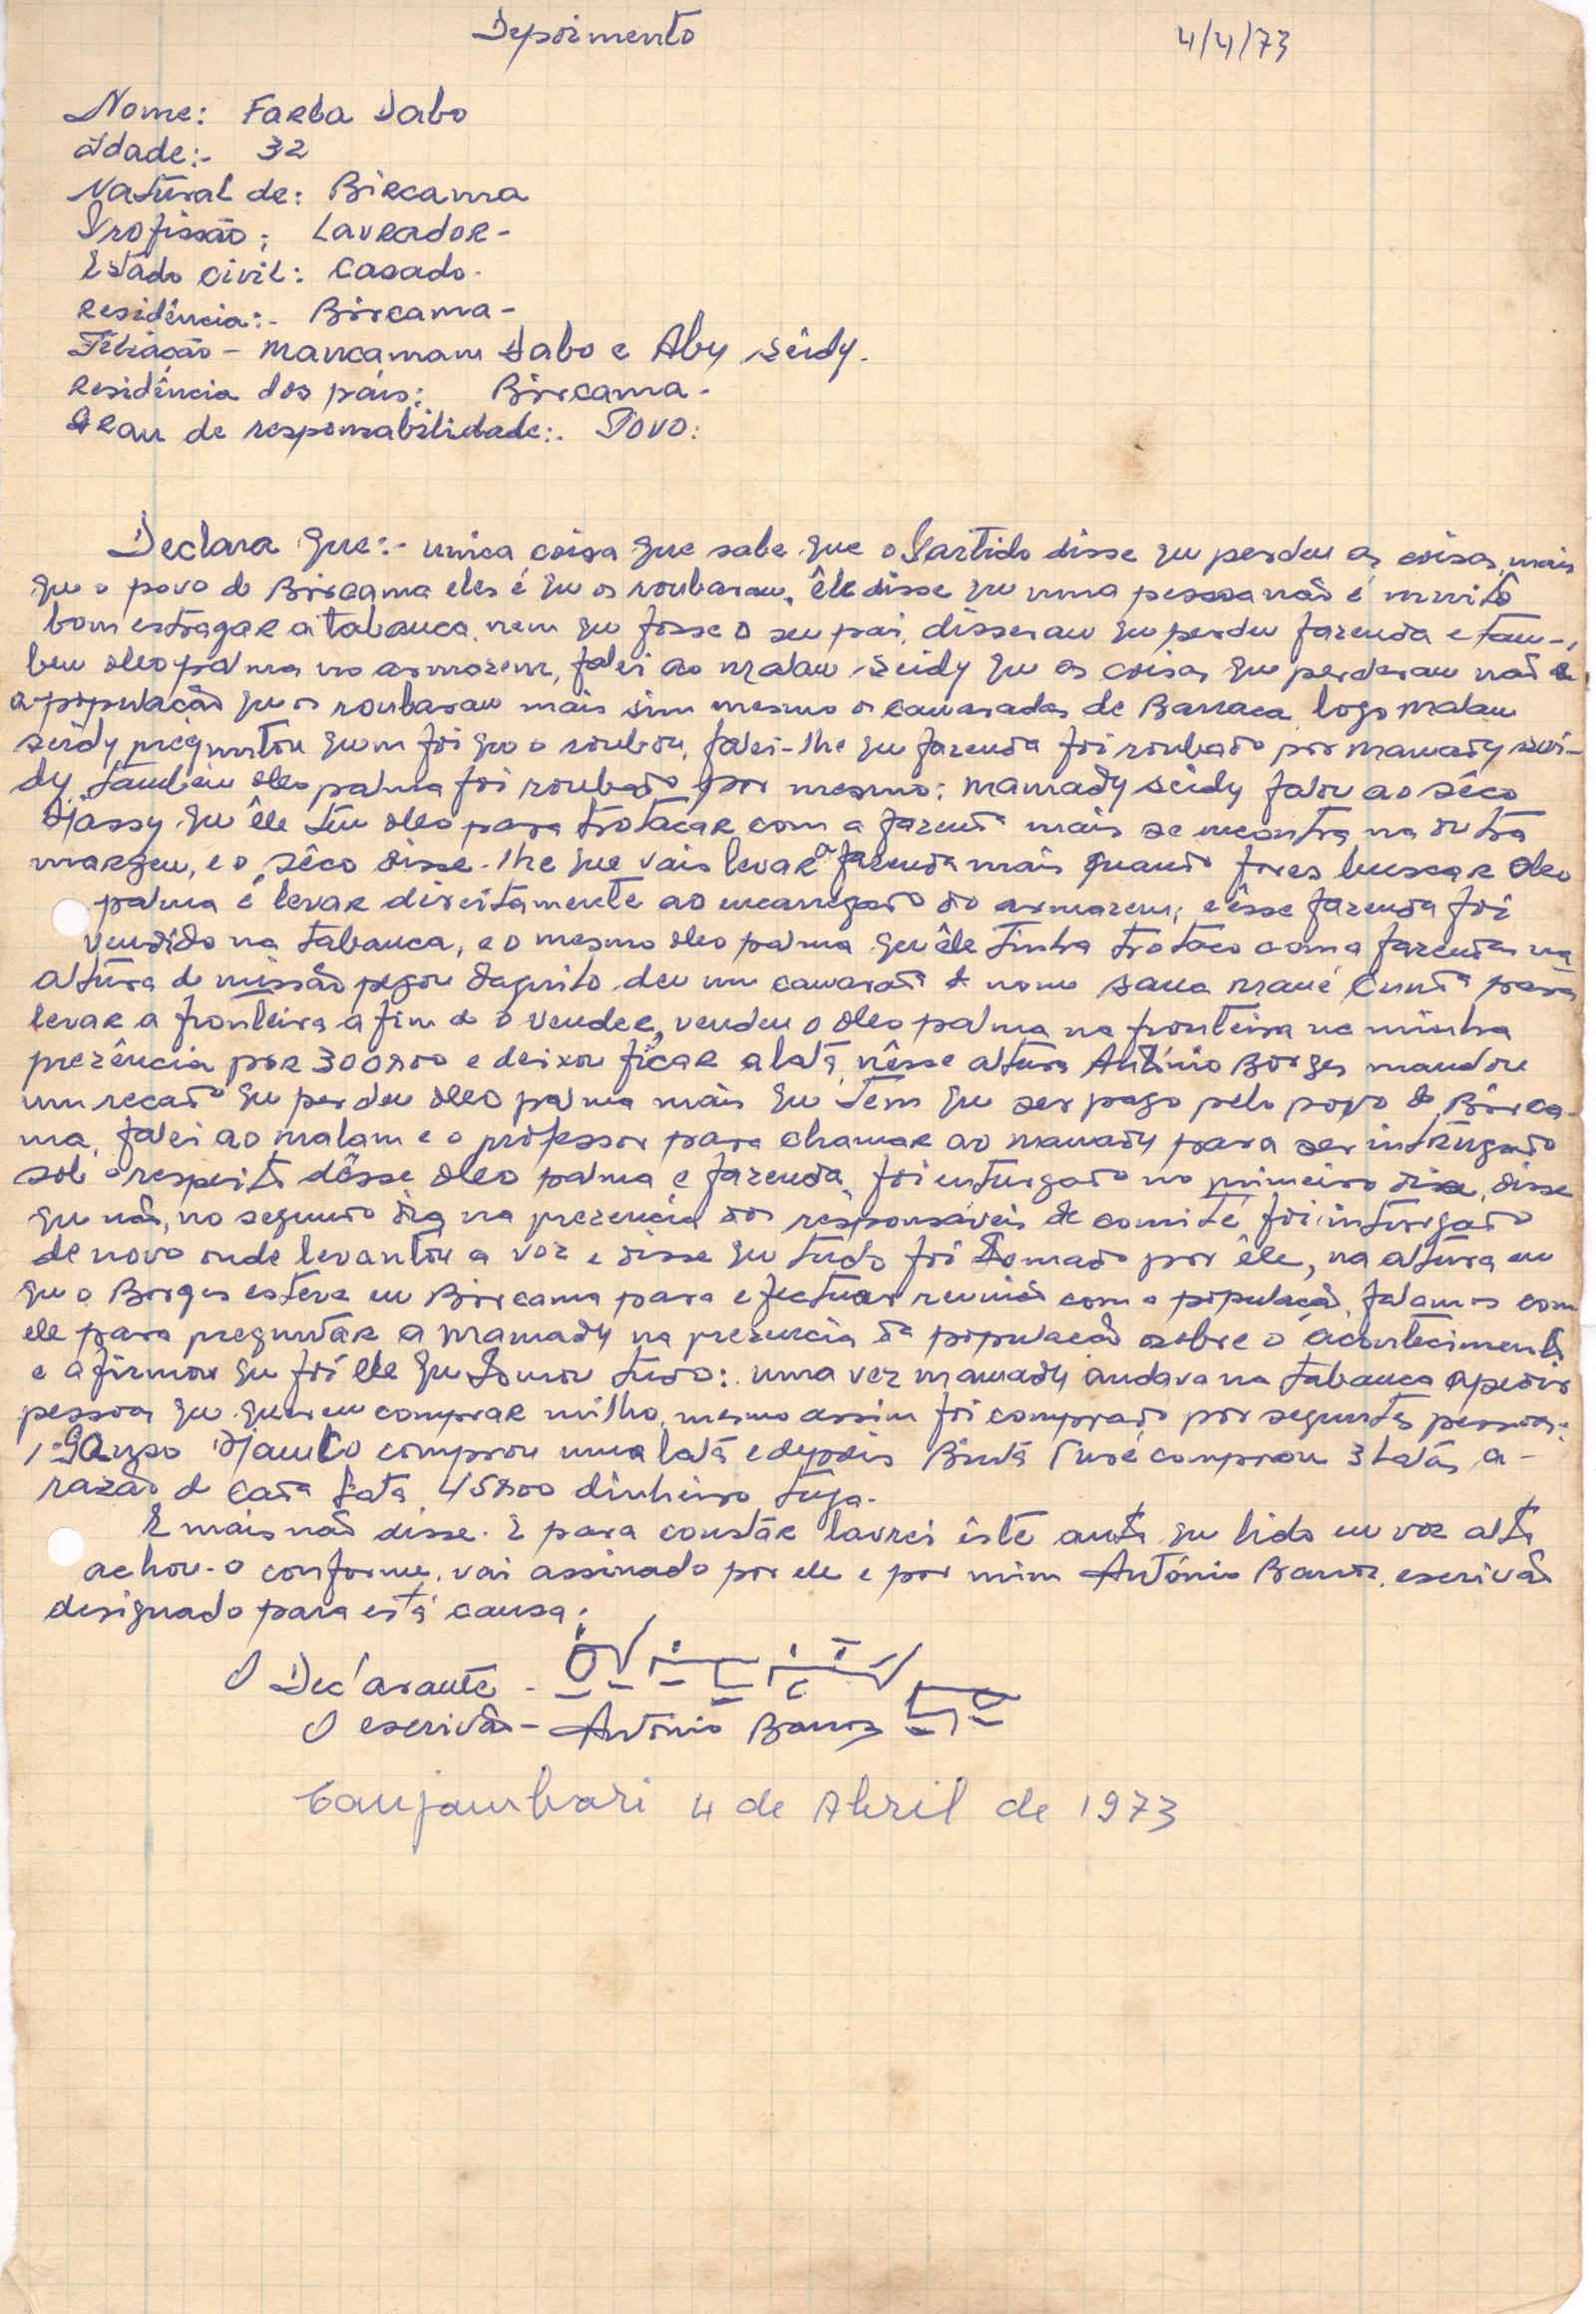 Depoimento 4/4/73
Nome: Farba Dabo
Idade:- 32
Natural de: Bircama
Profissão: Lavrador-
Estado civil: Casado-
Residência:- Bircama-
Filiação - Mancamam Dabo e Aby Seidy.
Residência dos pais: Bircama-
Grau de responsabilidade:. Povo:
Declara que:- unica coisa que sabe que o Partido disse que perdeu as coisas, mais
que o povo de Bircama eles é que os roubaram, êle disse que uma pessoa não é muito
bom estragar a tabanca, nem que fosse o seu pai, disseram que perdeu fazenda e tam-
bem oleo palma no armazem, falei ao Malam Seidy que as coisas que perderam não é
a população que os roubaram mais sim mesmo os camaradas de Barraca, logo Malam
Seidy preguntou quem foi que o roubou, falei-lhe que fazenda foi roubado por Mamady Sei-
dy, tambem oleo palma foi roubado por mesmo: Mamady Seidy falou ao Sêco
Djassy que êle tem oleo para trotacar com a fazenda mais se encontra na outra
margem, e o Sêco disse-lhe que vais levar a fazenda mais quando fores buscar oleo
palma é levar direitamente ao encarregado do armazem, e êsse fazenda foi
vendido na tabanca, e o mesmo oleo palma que êle tinha trotaco com a fazenda na
altura de missão pegou daquilo deu um camarada de nome Sana Mané Cunda para
levar a fronteira a fim de o vender, vendeu o oleo palma na fronteira na minha
prezência por 300$00 e deixou ficar a lata, nêsse altura António Borges mandou
um recado que perdeu oleo palma mais que tem que ser pago pelo povo de Birca-
ma, falei ao malam e o professor para chamar ao mamady para ser intrugado
sob o respeito dêsse oleo palma e fazenda, foi enturgado no primeiro dia, disse
que não, no segundo dia na prezencia dos responsáveis de comité foi inturgado
de novo onde levantou a voz e disse que tudo foi tomado por êle, na altura em
que o Borges esteve em Bircama para efectuar reunião com a população, falamos com
ele para preguntar a Mamady na presencia da população sobre o acontecimento
e afirmou que foi ele que tomou tudo: uma vez mamady andava na tabanca apedir
pessoas que querem comprar milho, mesmo assim foi comprado por seguintes pessoas:
comprou uma lata e depois Binta Turé comprou 3 latas a-
razão de cada lata 45$00 dinheiro tuga-
E mais não disse. E para constar lavrei êste auto que lido em voz alta
achou-o conforme, vai assinado por ele e por mim António Barros, escrivão
designado para esta causa:
O Declarante -
O escrivão - António Barros
Canjambari 4 de Abril de 1973